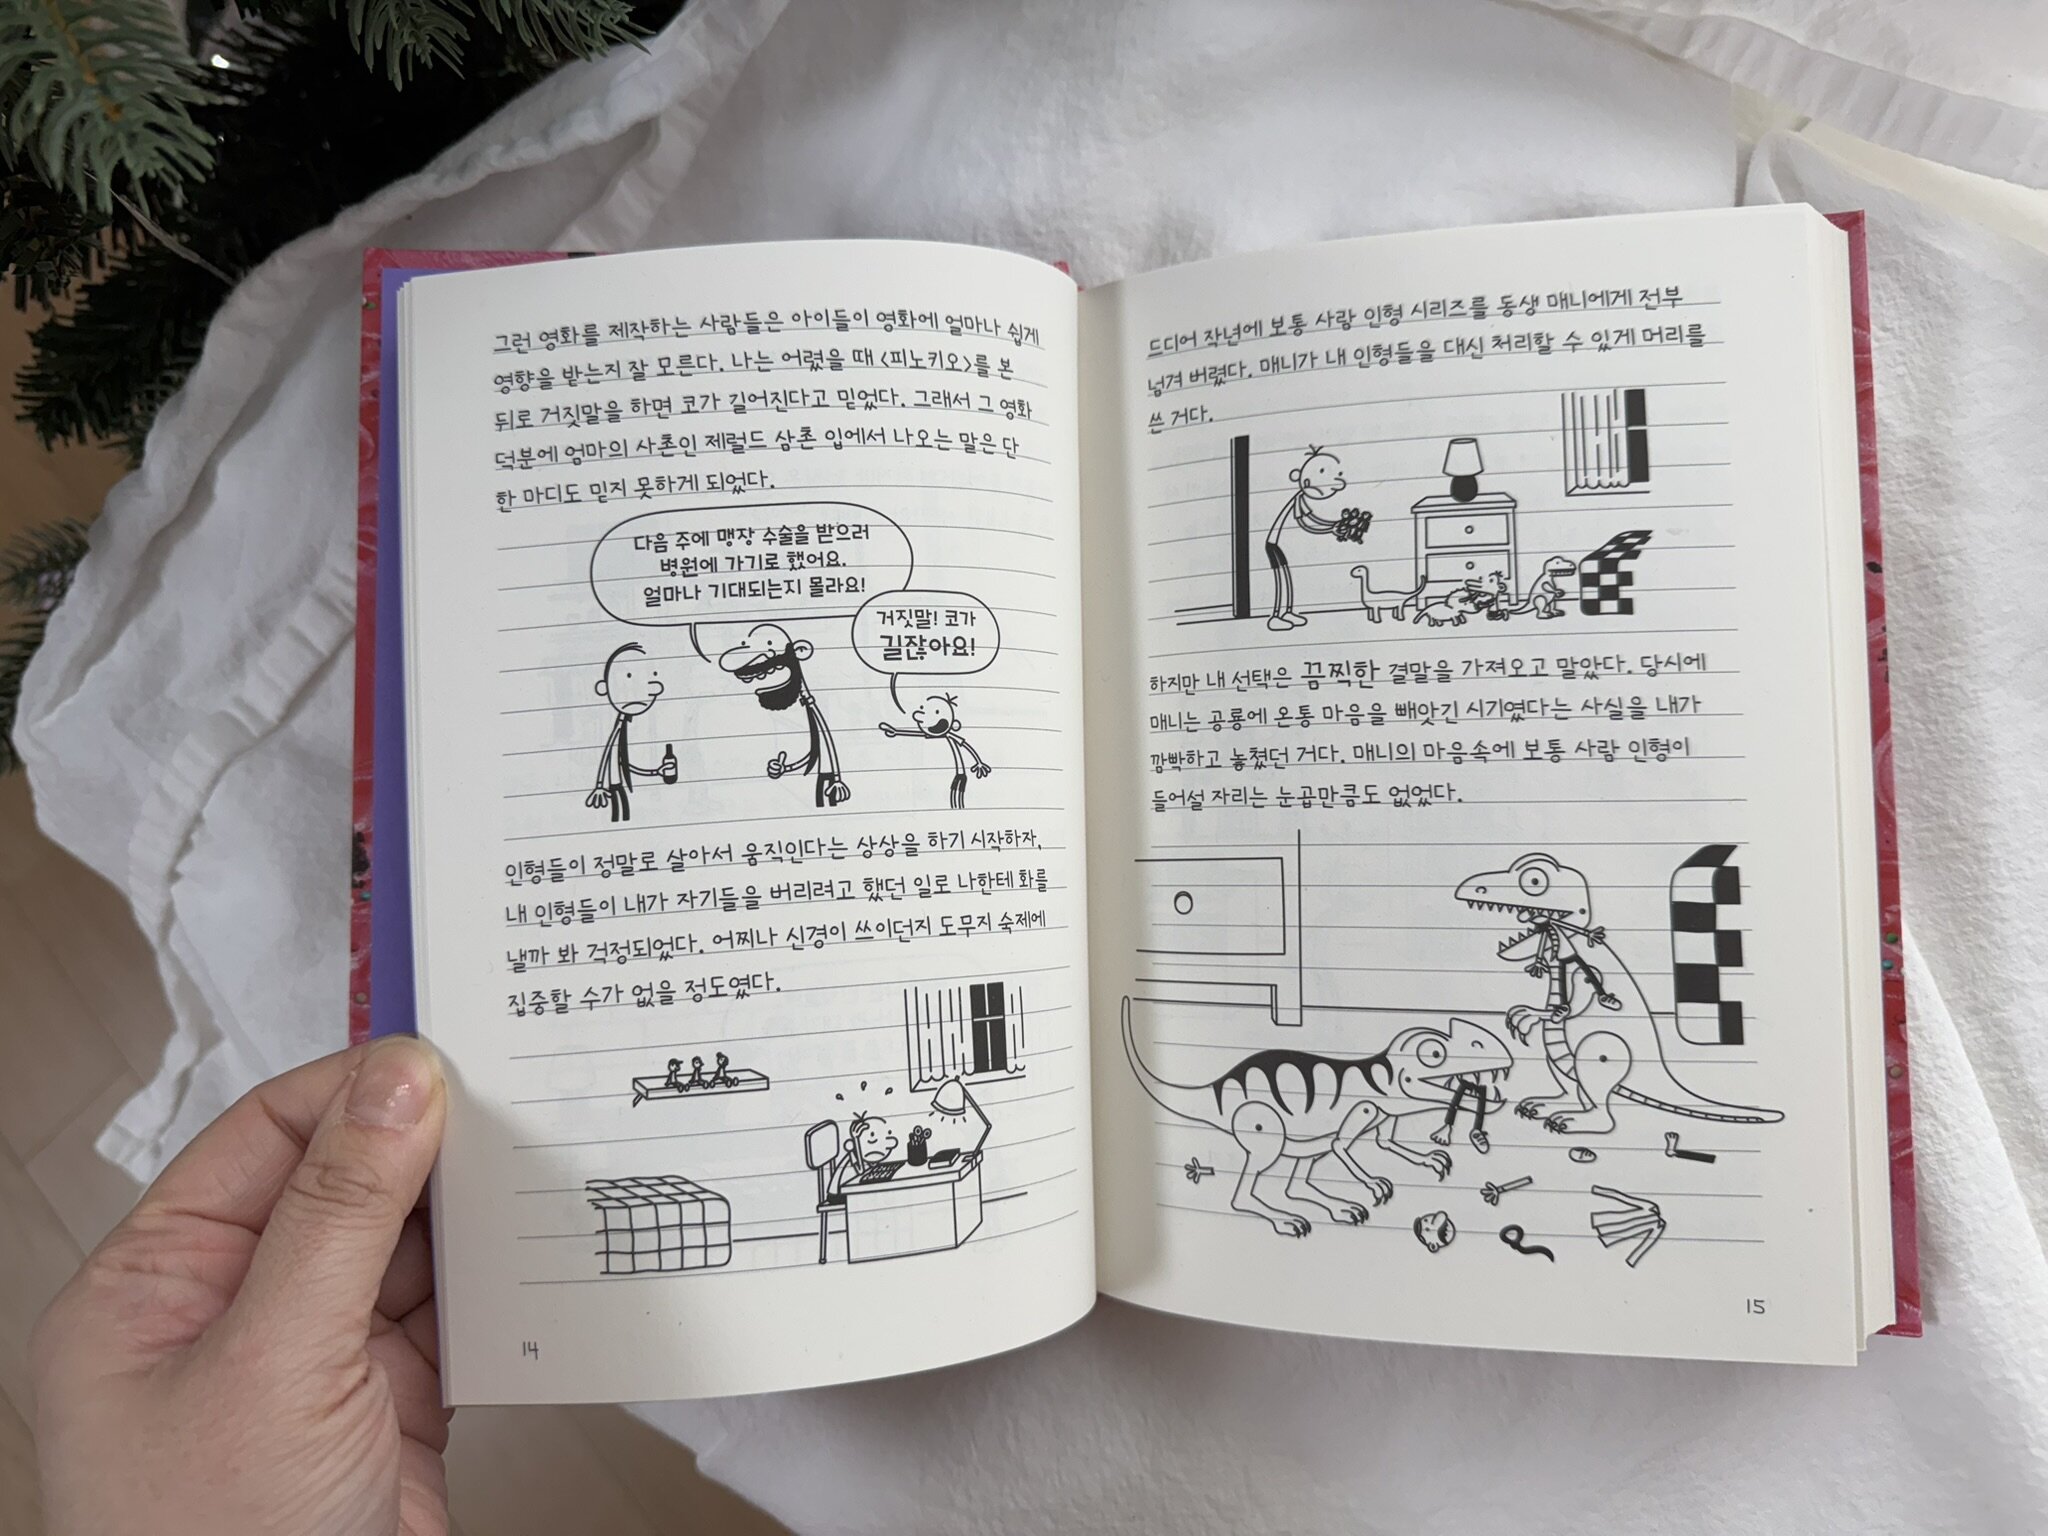 그런 영화를 제작하는 사람들은 아이들이 영화에 얼마나 쉽게
영향을 받는지 잘 모른다. 나는 어렸을 때 <피노키오>를 본
뒤로 거짓말을 하면 코가 길어진다고 믿었다. 그래서 그 영화
덕분에 엄마의 사촌인 제럴드 삼촌 입에서 나오는 말은 단
한 마디도 믿지 못하게 되었다.
다음 주에 맹장 수술을 받으러
병원에 가기로 했어요.
얼마나 기대되는지 몰라요!
거짓말! 코가
길잖아요!
인형들이 정말로 살아서 움직인다는 상상을 하기 시작하자,
내 인형들이 내가 자기들을 버리려고 했던 일로 나한테 화를
낼까 봐 걱정되었다. 어찌나 신경이 쓰이던지 도무지 숙제에
집중할 수가 없을 정도였다.
14
드디어 작년에 보통 사람 인형 시리즈를 동생 매니에게 전부
넘겨 버렸다. 매니가 내 인형들을 대신 처리할 수 있게 머리를
쓴 거다.
하지만 내 선택은 끔찍한 결말을 가져오고 말았다. 당시에
매니는 공룡에 온통 마음을 빼앗긴 시기였다는 사실을 내가
깜빡하고 놓쳤던 거다. 매니의 마음속에 보통 사람 인형이
들어설 자리는 눈곱만큼도 없었다.
15